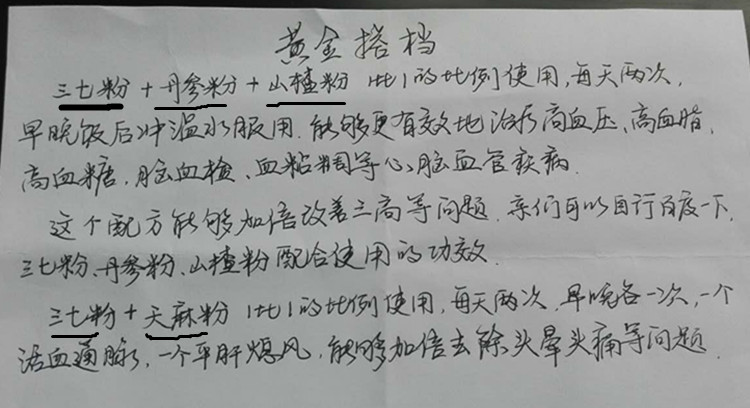 黄金搭档
三七粉+丹参粉+山楂粉 1比1的比例使用,每天两次,
早晚饭后冲温水服用.能够更有效地治疗高血压、高血脂,
高血糖.脑血栓、血粘稠等心、脑血管疾病.
这个配方能够加倍改善三高等问题.亲们可以自行百度一下.
三七粉、丹参粉、山楂粉配合使用的功效.
三七粉+天麻粉 1比1的比例使用,每天两次,早晚各一次,一个
活血通脉,一个平肝熄风,能够加倍去除头晕头痛等问题.